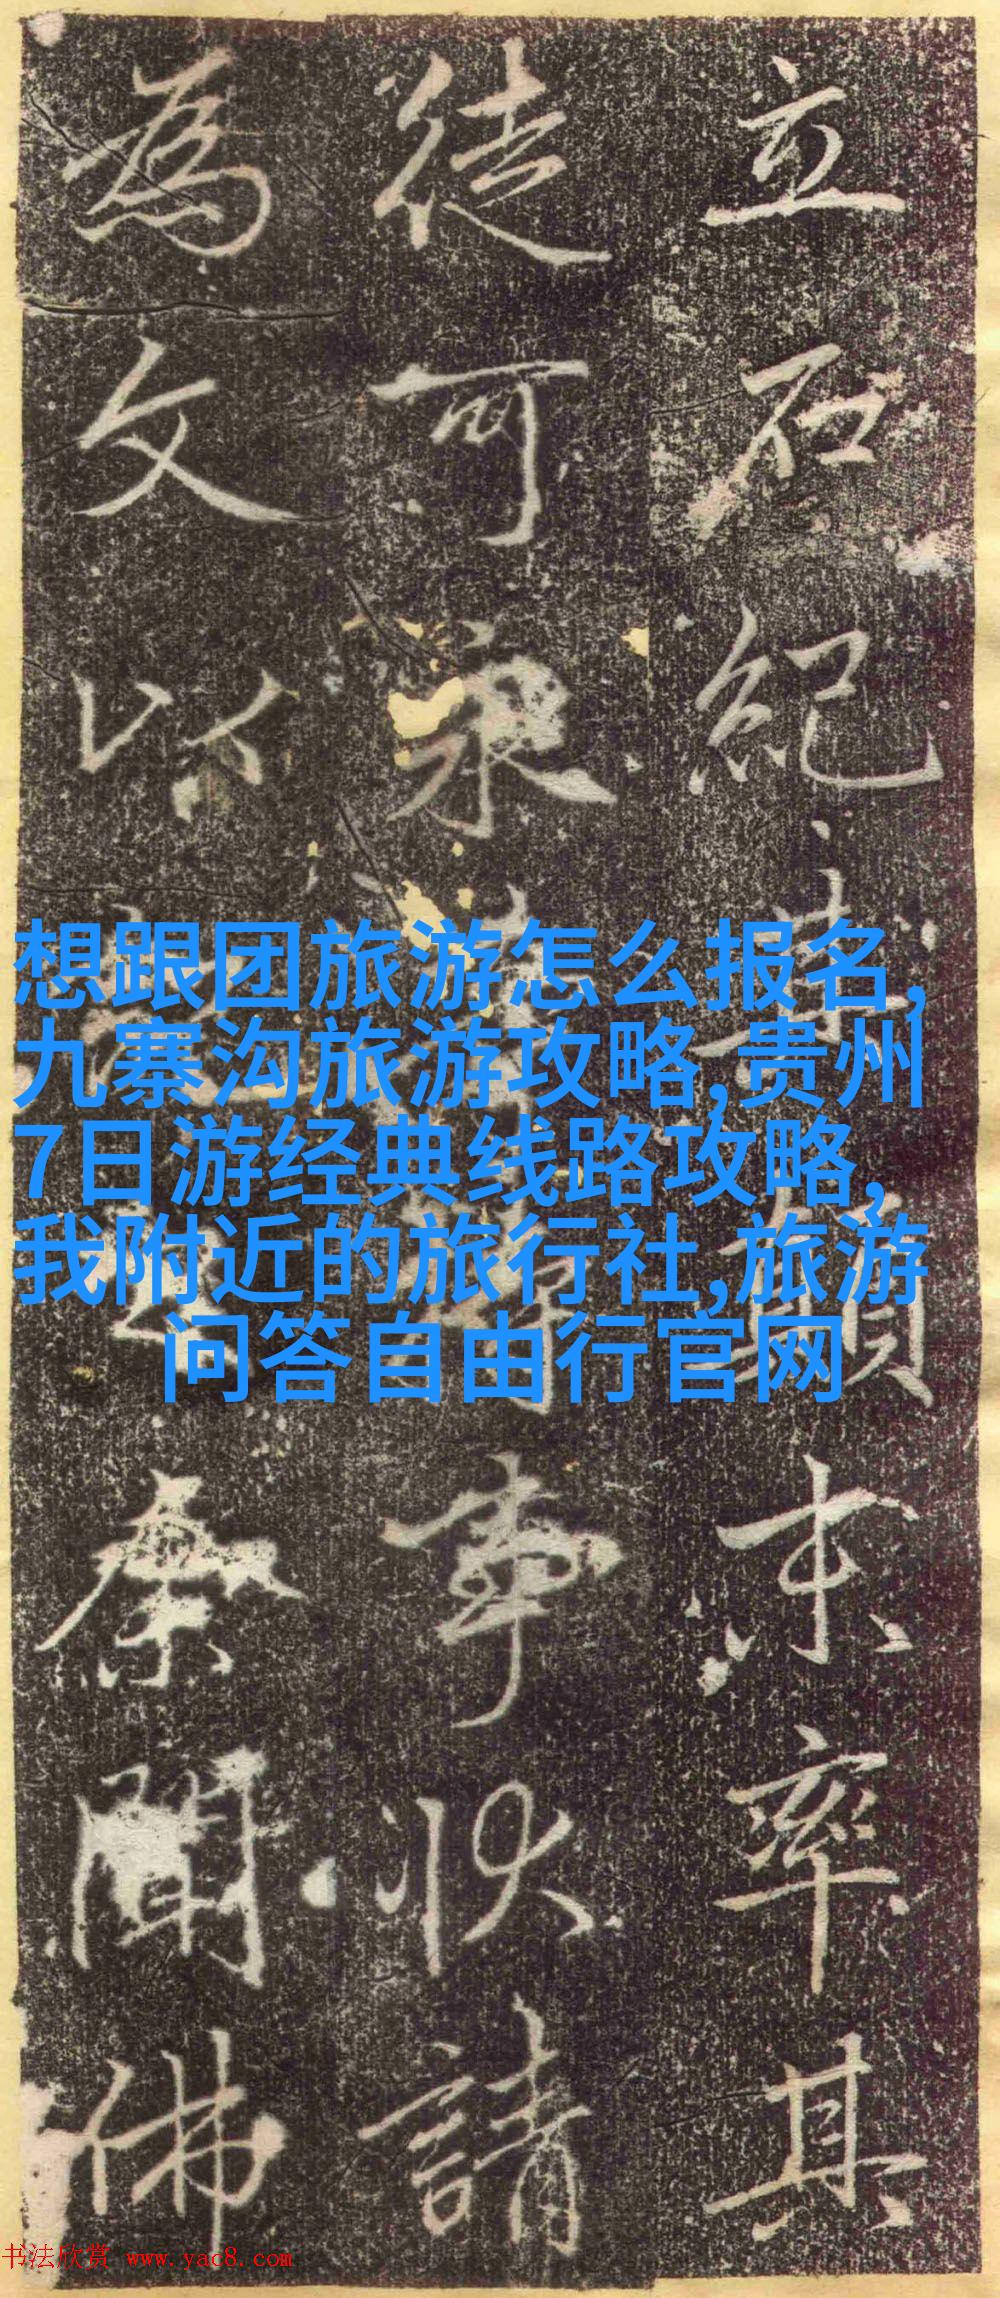 想跟团旅游怎么报名,
九寨沟旅游攻略,贵州
7日游经典线路攻略,
我附近的旅行社,旅游
问答自由行官网
立石紀其顛末率其
徒可事狀請
為文以余聞佛
书法欣赏 www.yac8.com